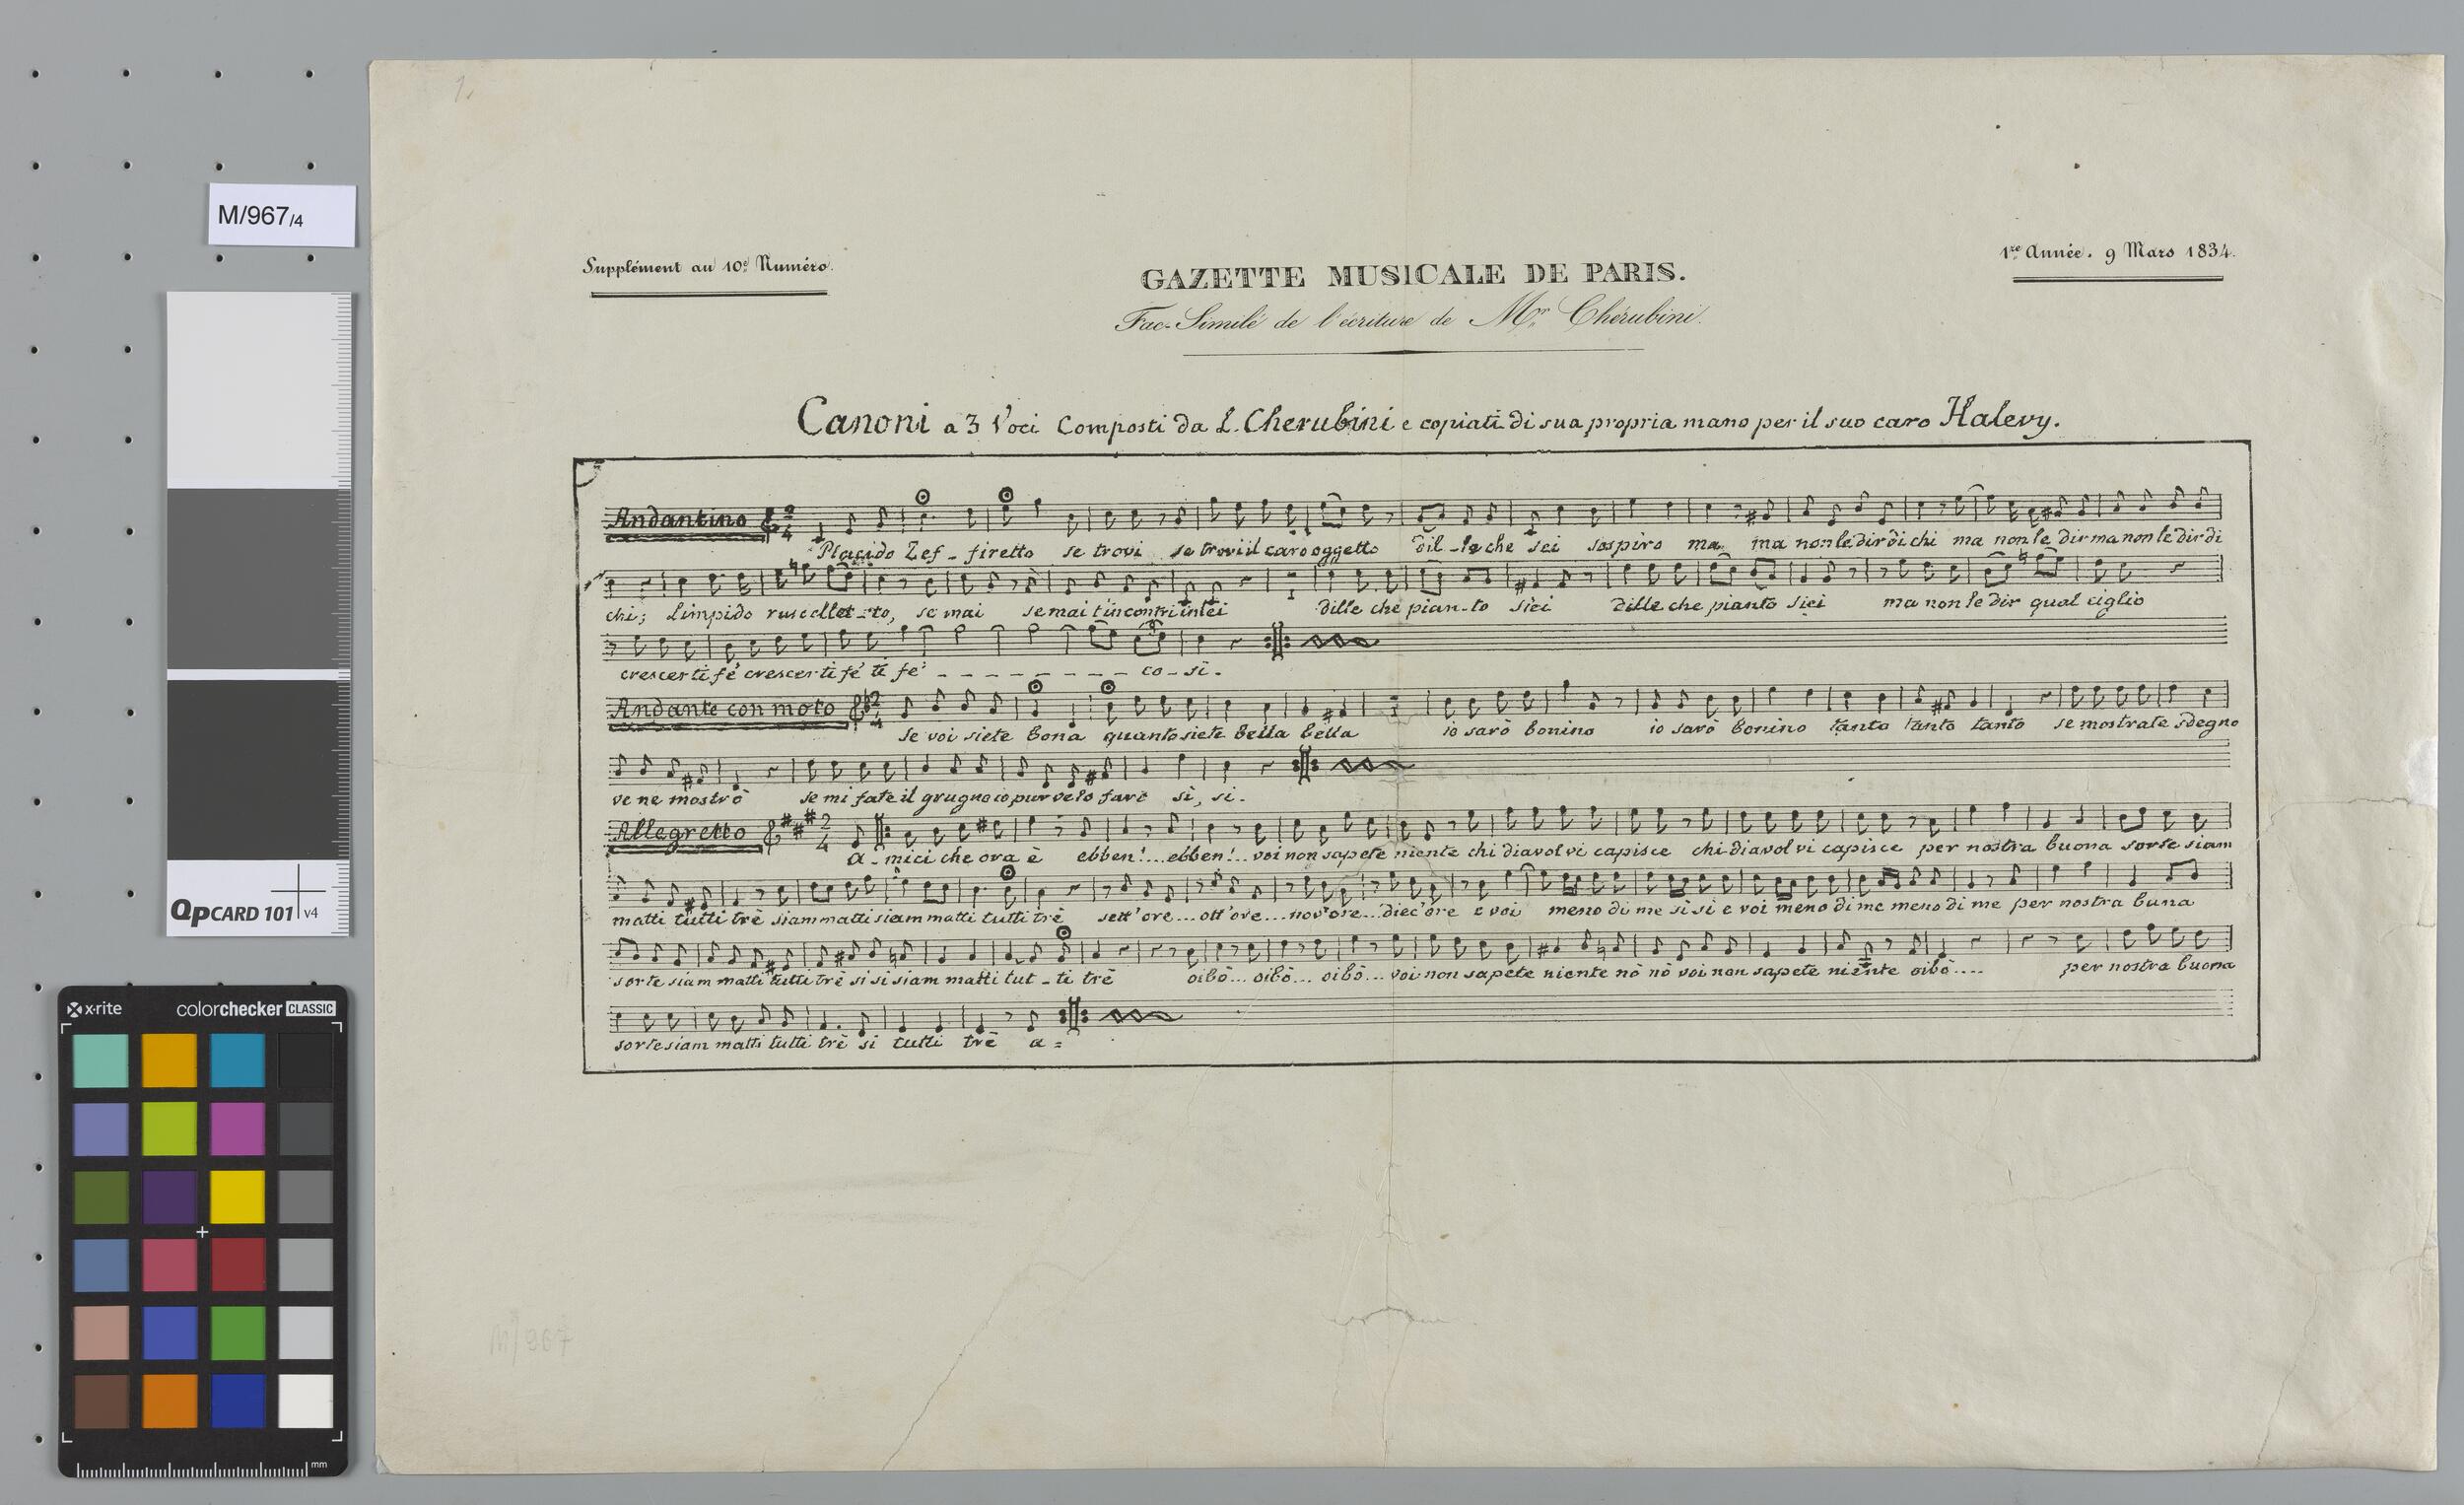 1.
M/967/4
Supplément au 10e Numéro.
1re Année. 9 Mars 1834.
GAZETTE MUSICALE DE PARIS.
Fac-Similé de l'écriture de Mr Chérubini.
Canoni a 3 Voci Composti da L. Cherubini e copiati di sua propria mano per il suo caro Halevy.
Andantino 2 4
Placido Zef - firetto se trovi se trovi il caro oggetto dil - le che sei sospiro ma ma non le dir di chi ma non le dir ma non le dir di
chi; Limpido ruscellet - to, se mai se mai t'incontri in lei dille che pian - to siei dille che pianto siei ma non le dir qual ciglio
crescer ti fè crescer ti fè ti fè - - - - - - - - - co - sì.
Andante con moto 2 4
Se voi siete bona quanto siete bella bella io sarò bonino io sarò bonino tanto tanto tanto se mostrate sdegno
ve ne mostrò se mi fate il grugno io pur ve lo farò sì, si.
Allegretto 2 4
A - mici che ora è ebben!... ebben!.. voi non sapete niente chi diavol vi capisce chi diavol vi capisce per nostra buona sorte siam
matti tutti trè siam matti siam matti tutti trè sett'ore... ott'ore... nov'ore... diec'ore e voi meno di me sì si e voi meno di me meno di me per nostra buna
sorte siam matti tutti trè si si siam matti tut - ti trè oibò... oibò... oibò... voi non sapete niente nò nò voi non sapete niente oibò.... per nostra buona
sorte siam matti tutti trè si tutti trè a =
QPCARD 101 v4
x-rite colorchecker CLASSIC
mm
M/967